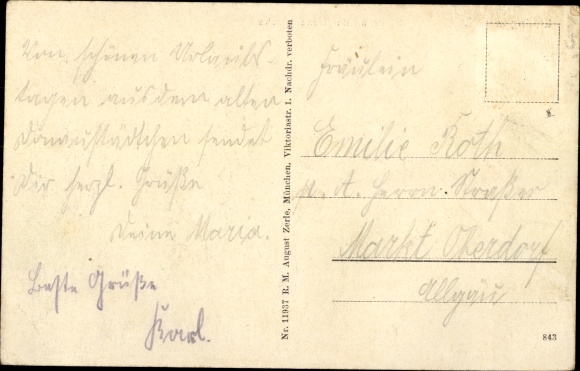 Von schönen Urlaubs-
tagen aus dem alten
Donaustädtchen sendet
Dir herzl. Grüße
Deine Maria.
Beste Grüße
Karl.
Nr. 11937 R. M. August Zerle, München, Viktoriastr. 1. Nachdr. verboten
Fräulein
Emilie Roth
p. A. Herrn Straßer
Markt Oberdorf
Allgäu
843